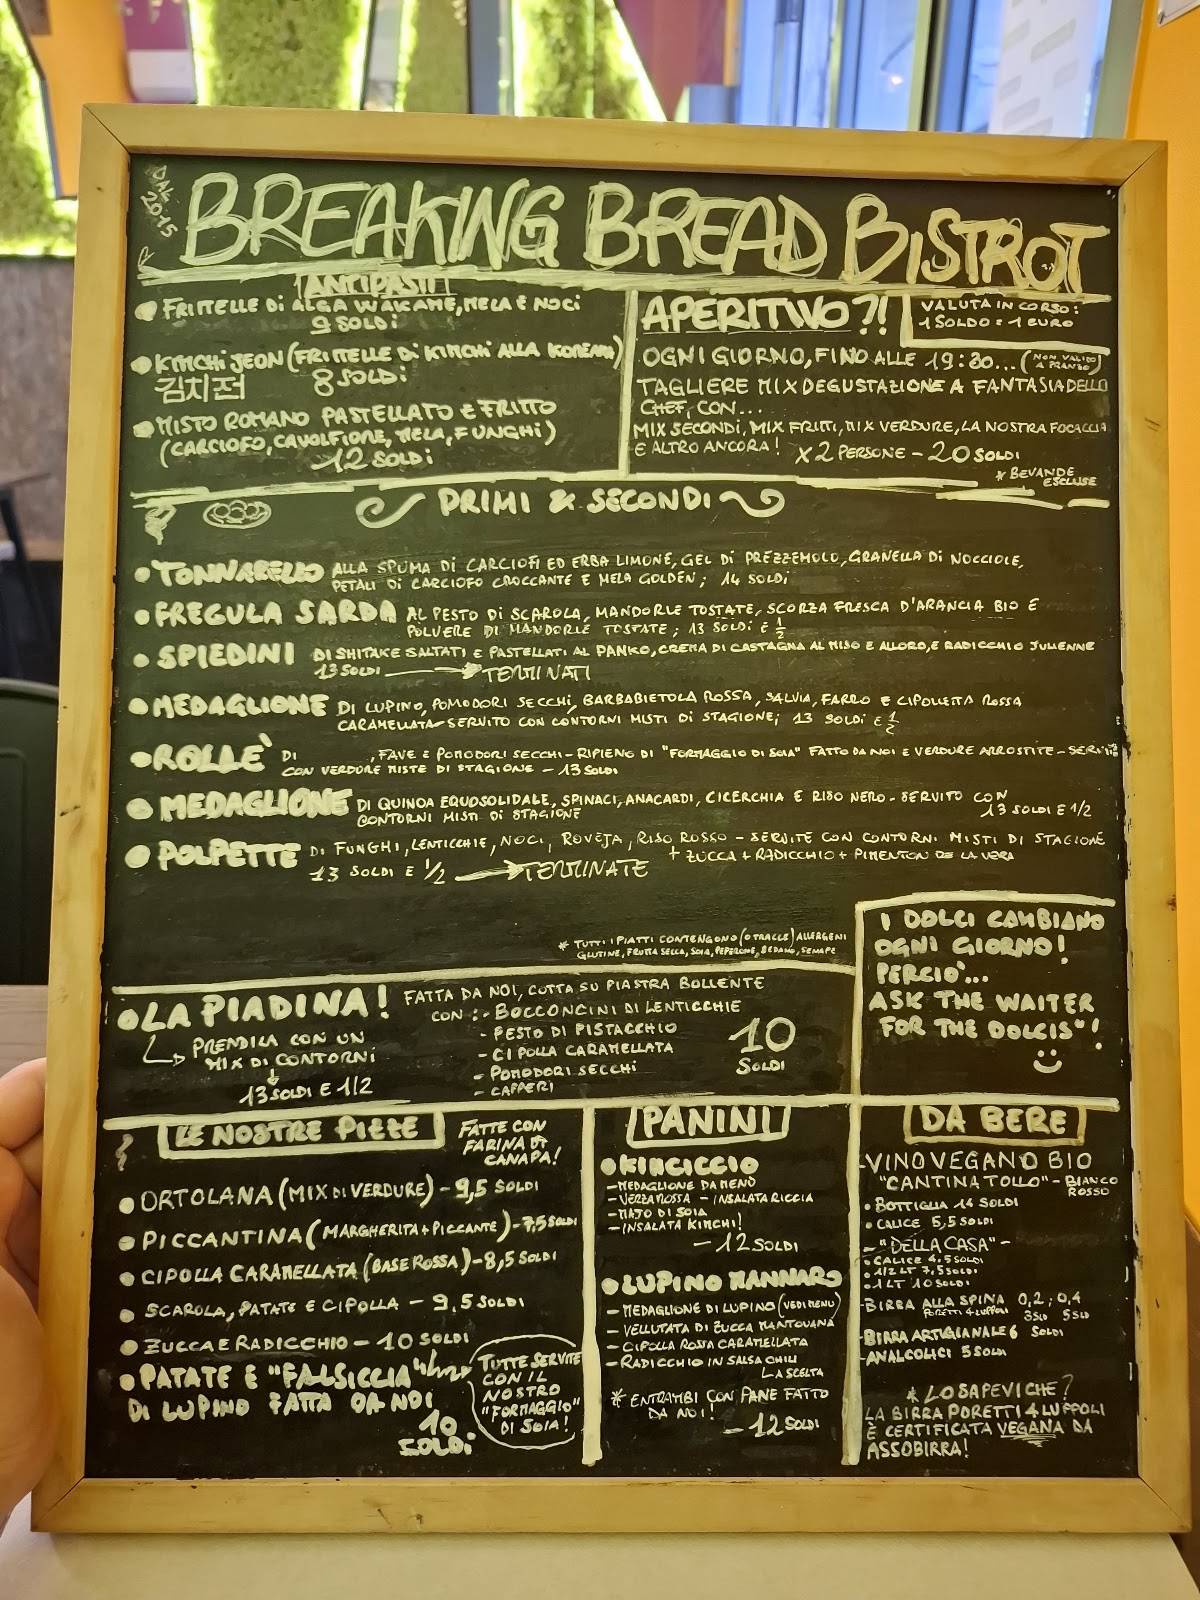 DAL 2015
BREAKING BREAD BISTROT
ANTIPASTI
• FRITTELLE DI ALGA WAKAME, MELA E NOCI
9 SOLDI
• KIMCHI JEON (FRITTELLE DI KIMCHI ALLA KOREANA)
김치전 8 SOLDI
• MISTO ROMANO PASTELLATO E FRITTO
(CARCIOFO, CAVOLFIORE, MELA, FUNGHI)
12 SOLDI
APERITIVO?!
VALUTA IN CORSO:
1 SOLDO = 1 EURO
OGNI GIORNO, FINO ALLE 19:30... (NON VALIDO A PRANZO)
TAGLIERE MIX DEGUSTAZIONE A FANTASIA DELLO
CHEF, CON...
MIX SECONDI, MIX FRITTI, MIX VERDURE, LA NOSTRA FOCACCIA
E ALTRO ANCORA! X2 PERSONE - 20 SOLDI
* BEVANDE
ESCLUSE
PRIMI & SECONDI
• TONNARELLO ALLA SPUMA DI CARCIOFI ED ERBA LIMONE, GEL DI PREZZEMOLO, GRANELLA DI NOCCIOLE,
PETALI DI CARCIOFO CROCCANTE E MELA GOLDEN; 14 SOLDI
• FREGULA SARDA AL PESTO DI SCAROLA, MANDORLE TOSTATE, SCORZA FRESCA D'ARANCIA BIO E
POLVERE DI MANDORLE TOSTATE; 13 SOLDI E 1/2
• SPIEDINI DI SHITAKE SALTATI E PASTELLATI AL PANKO, CREMA DI CASTAGNA AL MISO E ALLORO, E RADICCHIO JULIENNE
13 SOLDI → TERMINATI
• MEDAGLIONE DI LUPINO, POMODORI SECCHI, BARBABIETOLA ROSSA, SALVIA, FARRO E CIPOLLETTA ROSSA
CARAMELLATA - SERVITO CON CONTORNI MISTI DI STAGIONE; 13 SOLDI E 1/2
• ROLLÈ DI , FAVE E POMODORI SECCHI - RIPIENO DI "FORMAGGIO DI SOIA" FATTO DA NOI E VERDURE ARROSTITE - SERVITO
CON VERDURE MISTE DI STAGIONE - 13 SOLDI
• MEDAGLIONE DI QUINOA EQUOSOLIDALE, SPINACI, ANACARDI, CICERCHIA E RISO NERO - SERVITO CON
CONTORNI MISTI DI STAGIONE 13 SOLDI E 1/2
• POLPETTE DI FUNGHI, LENTICCHIE, NOCI, ROVEJA, RISO ROSSO - SERVITE CON CONTORNI MISTI DI STAGIONE
+ ZUCCA + RADICCHIO + PIMENTON DE LA VERA
13 SOLDI E 1/2 → TERMINATE
* TUTTI I PIATTI CONTENGONO (O TRACCE) ALLERGENI
GLUTINE, FRUTTA SECCA, SOIA, PEPERONE, SEDANO, SENAPE
I DOLCI CAMBIANO
OGNI GIORNO!
PERCIÒ...
ASK THE WAITER
FOR THE "DOLCIS"!
• LA PIADINA! FATTA DA NOI, COTTA SU PIASTRA BOLLENTE
CON: - BOCCONCINI DI LENTICCHIE
- PESTO DI PISTACCHIO
- CIPOLLA CARAMELLATA
- POMODORI SECCHI
- CAPPERI
10
SOLDI
PRENDILA CON UN
MIX DI CONTORNI
13 SOLDI E 1/2
LE NOSTRE PIZZE
FATTE CON
FARINA DI
CANAPA!
• ORTOLANA (MIX DI VERDURE) - 9,5 SOLDI
• PICCANTINA (MARGHERITA + PICCANTE) - 7,5 SOLDI
• CIPOLLA CARAMELLATA (BASE ROSSA) - 8,5 SOLDI
• SCAROLA, PATATE E CIPOLLA - 9,5 SOLDI
• ZUCCA E RADICCHIO - 10 SOLDI
• PATATE E "FALSICCIA"
DI LUPINO FATTA DA NOI
10
SOLDI
TUTTE SERVITE
CON IL
NOSTRO
"FORMAGGIO"
DI SOIA!
PANINI
• KIMCICCIO
- MEDAGLIONE DA MENÙ
- VERZA ROSSA - INSALATA RICCIA
- MAYO DI SOIA
- INSALATA KIMCHI!
- 12 SOLDI
• LUPINO MANNARO
- MEDAGLIONE DI LUPINO (VEDI MENÙ)
- VELLUTATA DI ZUCCA MANTOVANA
- CIPOLLA ROSSA CARAMELLATA
- RADICCHIO IN SALSA CHILI
LA SCELTA
* ENTRAMBI CON PANE FATTO
DA NOI!
- 12 SOLDI
DA BERE
- VINO VEGANO BIO
"CANTINA TOLLO" - BIANCO
ROSSO
• BOTTIGLIA 14 SOLDI
• CALICE 5,5 SOLDI
- "DELLA CASA" -
• CALICE 4,5 SOLDI
• 1/2 LT 7,5 SOLDI
• 1 LT 10 SOLDI
- BIRRA ALLA SPINA 0,2; 0,4
PORETTI 4 LUPPOLI 3 SLD 5 SLD
- BIRRA ARTIGIANALE 6 SOLDI
- ANALCOLICI 5 SOLDI
* LO SAPEVI CHE?
LA BIRRA PORETTI 4 LUPPOLI
È CERTIFICATA VEGANA DA
ASSOBIRRA!